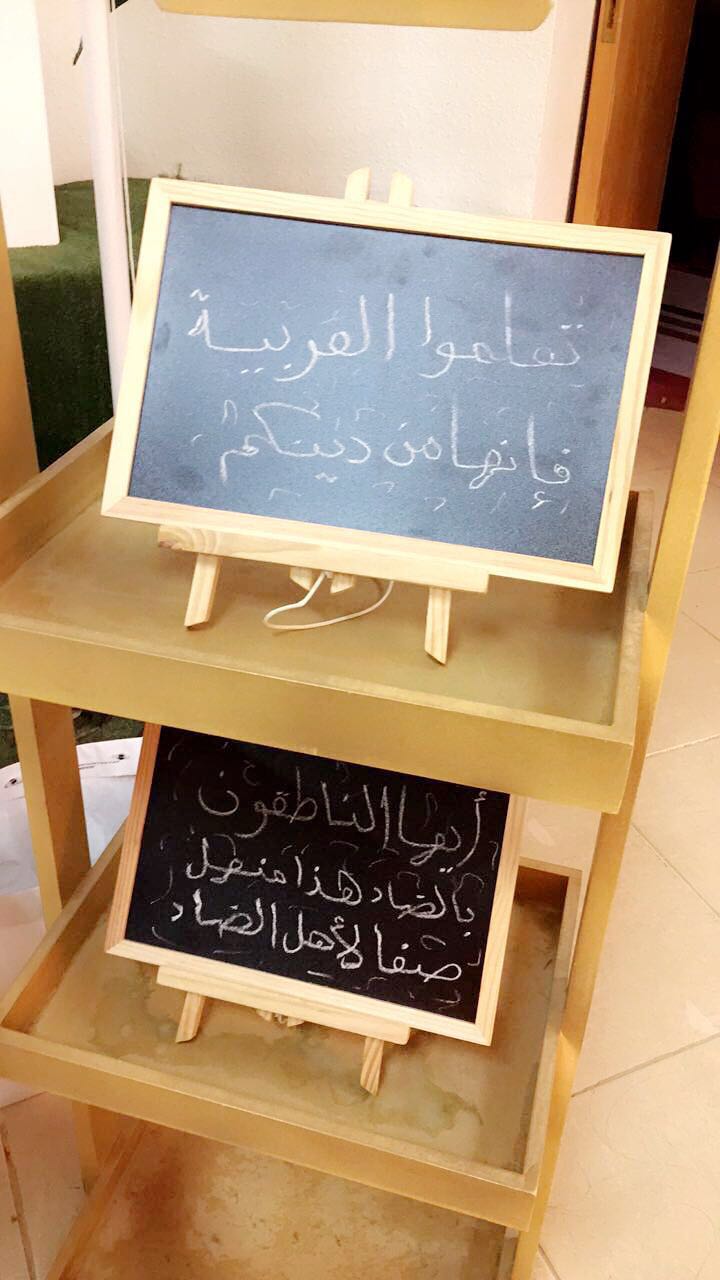 تعلموا العربية
فإنها من دينكم
أيها الناطقون
بالضاد هذا منهل
صفا لأهل الضاد